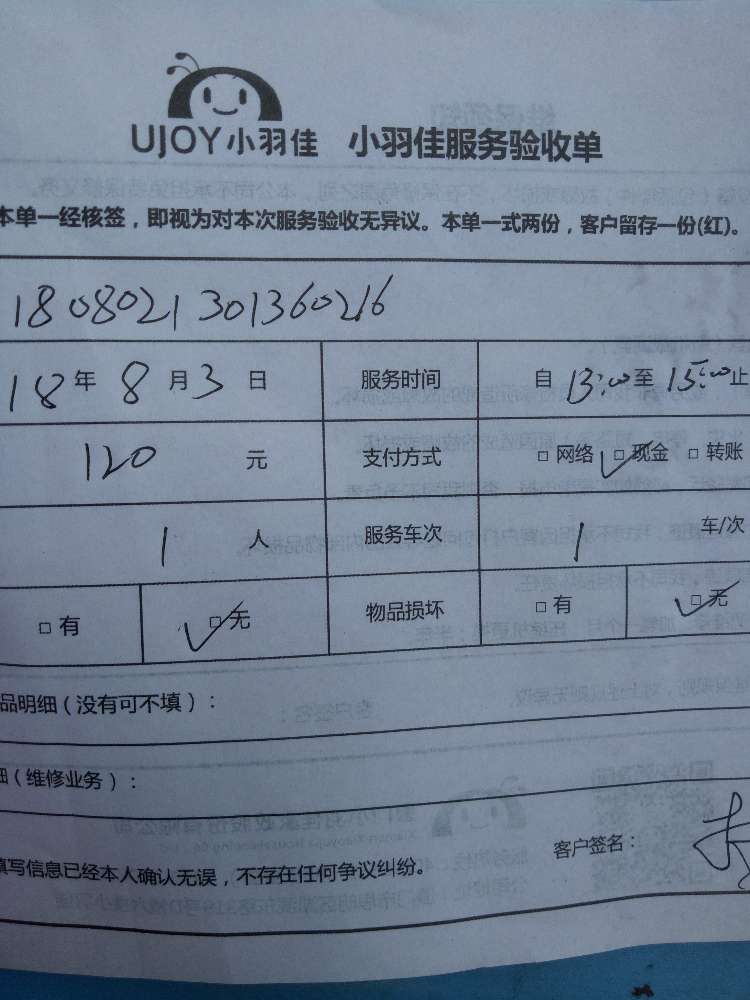 UJOY小羽佳 小羽佳服务验收单
本单一经核签，即视为对本次服务验收无异议。本单一式两份，客户留存一份(红)。
1808021301360216
18年 8月3日 服务时间 自 13:00至 15:00止
120 元 支付方式 □网络 ✓□现金 □转账
1 人 服务车次 1 车/次
□有 ✓□无 物品损坏 □有 ✓□无
品明细（没有可不填）：
细（维修业务）：
填写信息已经本人确认无误，不存在任何争议纠纷。 客户签名：